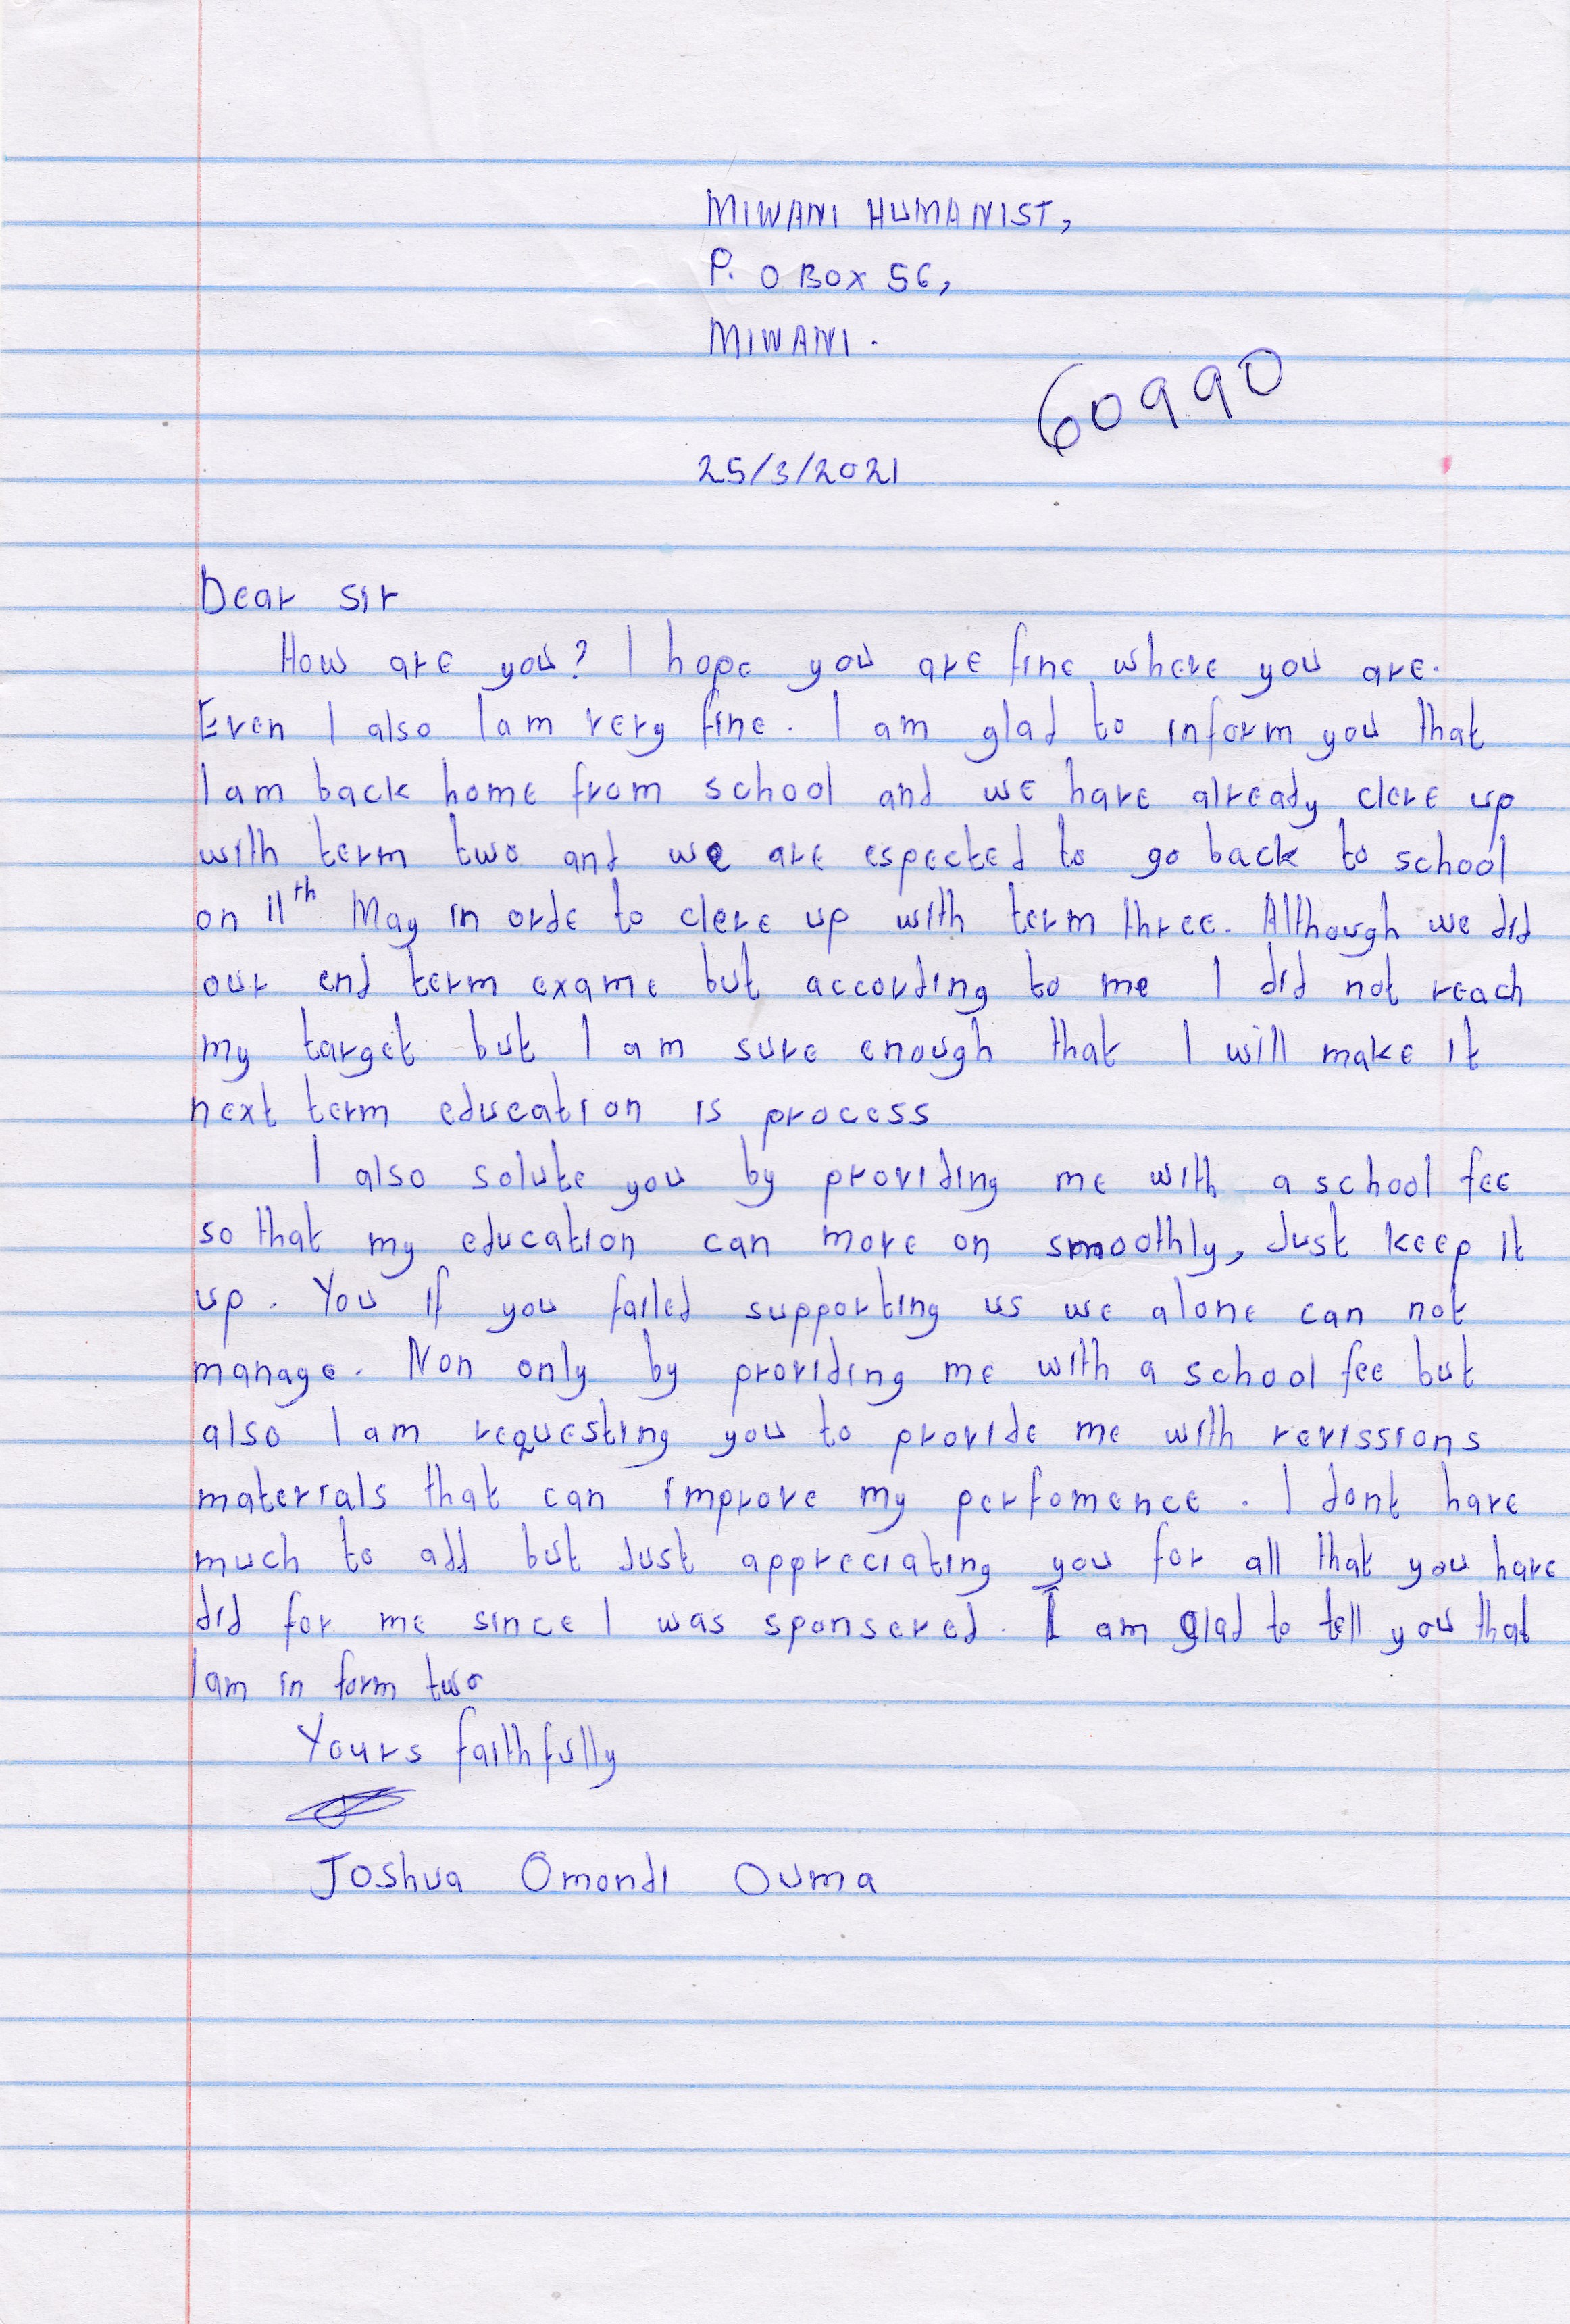 MIWANI HUMANIST,
P. O BOX 56,
MIWANI.
60990
25/3/2021
Dear sir
How are you? I hope you are fine where you are.
Even I also I am very fine. I am glad to inform you that
I am back home from school and we have already clere up
with term two and we are espected to go back to school
on 11th May in orde to clere up with term three. Although we did
our end term exame but according to me I did not reach
my target but I am sure enough that I will make it
next term education is process
I also solute you by providing me with a school fee
so that my education can move on smoothly, Just keep it
up. You if you failed supporting us we alone can not
manage. Non only by providing me with a school fee but
also I am requesting you to provide me with revissions
materials that can improve my perfomence. I dont have
much to add but Just appreciating you for all that you have
did for me since I was sponsered. I am glad to tell you that
I am in form two
Yours faithfully
Joshua Omondi Ouma